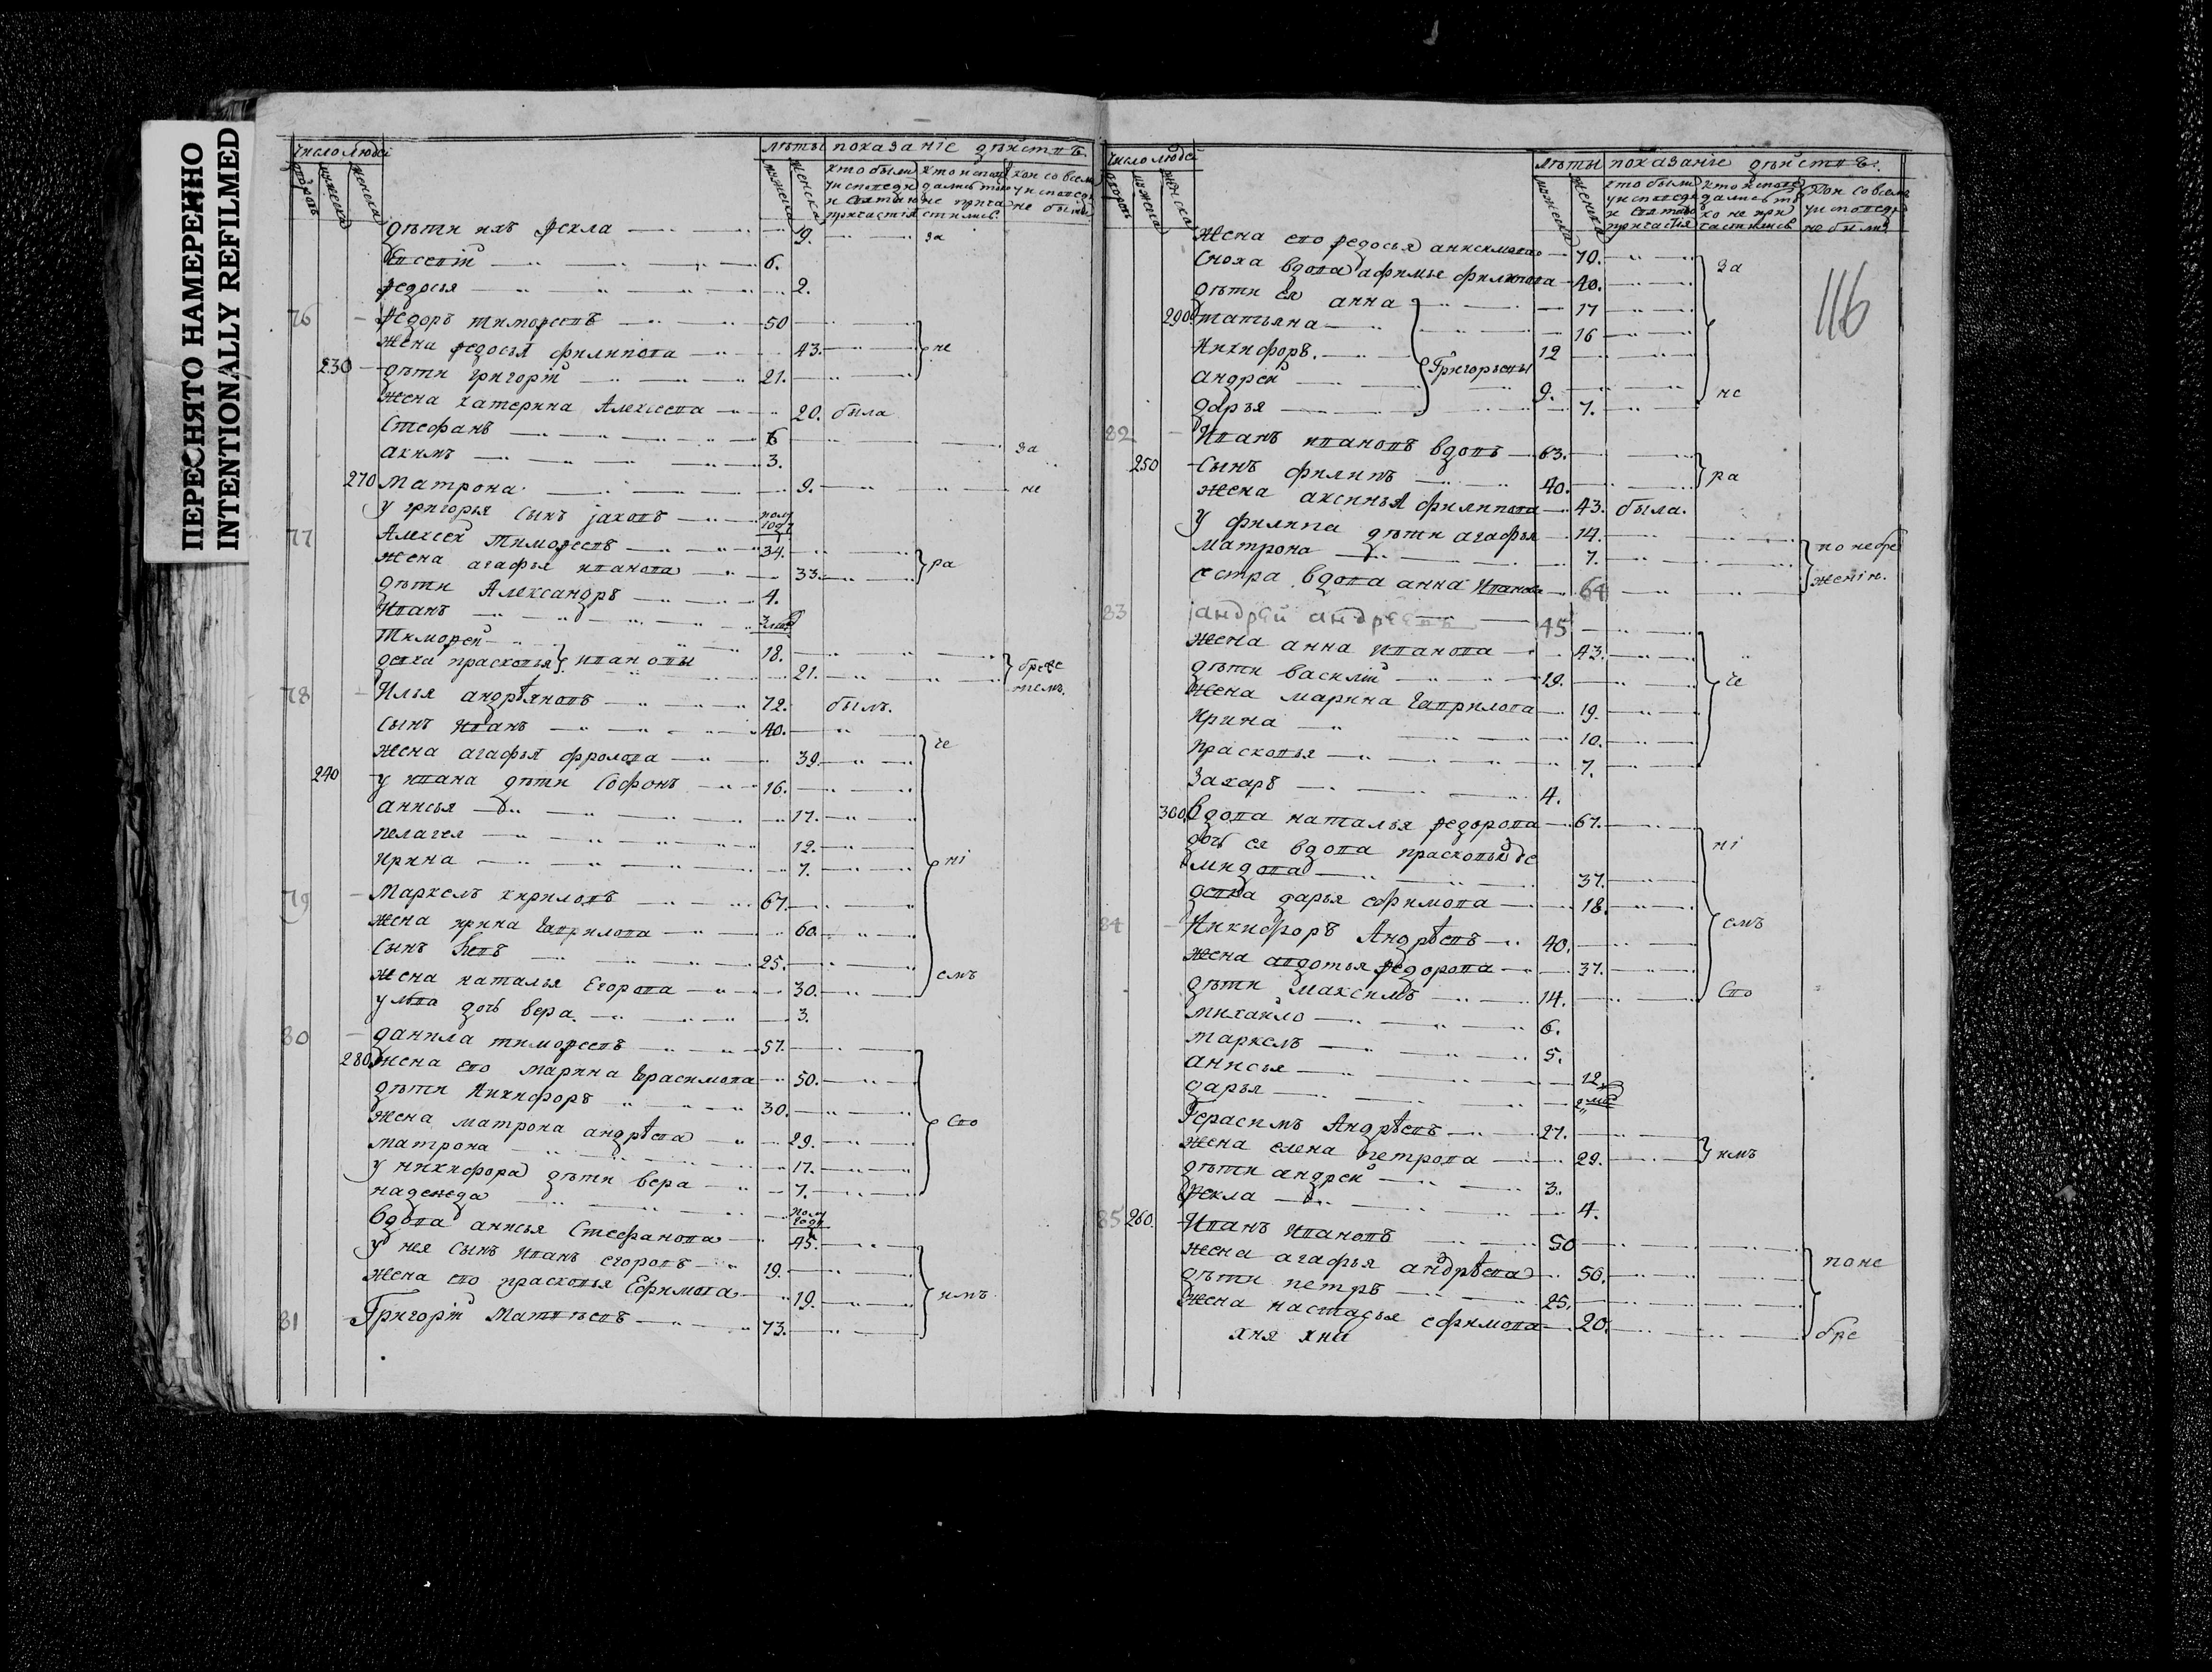 ПЕРЕСНЯТО НАМЕРЕННО
INTENTIONALLY REFILMED
число людеі
лѣты показаніе дѣйствъ
дѣти ихъ ѳекла 9. за
Евсевій 6.
ѳедосья 2.
76 ѳедоръ тимоѳеевъ 50
жена ѳедосья филипова 43. не
230 дѣти григорій 21.
жена катерина Алексеева 20. была
Стефанъ 6
акимъ 3. за
270 матрона 9. не
у григорья сынъ јаковъ полугоду
77 Алексей тимоѳеевъ 34.
жена агафья иванова 33. ра
дѣти Александръ 4.
Иванъ
Тимоѳей 18.
девка прасковья } ивановы 21.
78 Илья андрѣяновъ 72. былъ.
сынъ иванъ 40.
жена агафья фролова 39. че
240 у ивана дѣти Софонъ 16.
анисья 17.
пелагея 12.
ирина 7. ні
79 Маркелъ кириловъ 67.
жена ирина гаврилова 60.
сынъ левъ 25.
жена наталья Егорова 30. емъ
у льва дочь вера 3.
80 данила тимоѳеевъ 57.
280 жена его марина герасимова 50.
дѣти Никифоръ 30.
жена матрона андрѣева 29. Сво
матрона 17.
у никифора дѣти вера 7.
надежда полугоду
вдова анисья Стефанова 45.
у нея сынъ иванъ егоровъ 19.
жена его прасковья Ефимова 19. имъ
81 Григорій Матвѣевъ 73.
число людей
лѣты показаніе дѣйствъ.
116
жена его ѳедосья анисимова 70.
сноха вдова афимья филипова 40. за
дѣти ея анна 17
290 татьяна 16
Никифоръ. 12
андрей } Григорьевы 9. не
дарья 7.
82 Иванъ ивановъ вдовъ 63.
250 сынъ филипъ 40. ра
жена аксинья филипова 43. была.
у филипа дѣти агафья 14.
матрона 7. по небре
сестра вдова анна Иванова 64 женію.
83 јандрей андреевъ 45
жена анна иванова 43.
дѣти василій 19. че
жена марина гаврилова 19.
ирина 10.
прасковья 7.
Захаръ 4.
300 вдова наталья ѳедорова 67.
дочь ея вдова прасковья де ні
мидова 37.
девка дарья ефимова 18.
84 Никифоръ Андрѣевъ 40. емъ
жена авдотья ѳедорова 37.
дѣти максимъ 14. Сво
михаило 6.
маркелъ 5.
анисья 12.
дарья
Герасимъ Андрѣевъ 27.
жена елена петрова 29. имъ
дѣти андрей 3.
ѳекла 4.
85 260. Иванъ Ивановъ 50
жена агафья андрѣева 50. поне
дѣти петръ 25.
жена настасья ефимова 20. бре